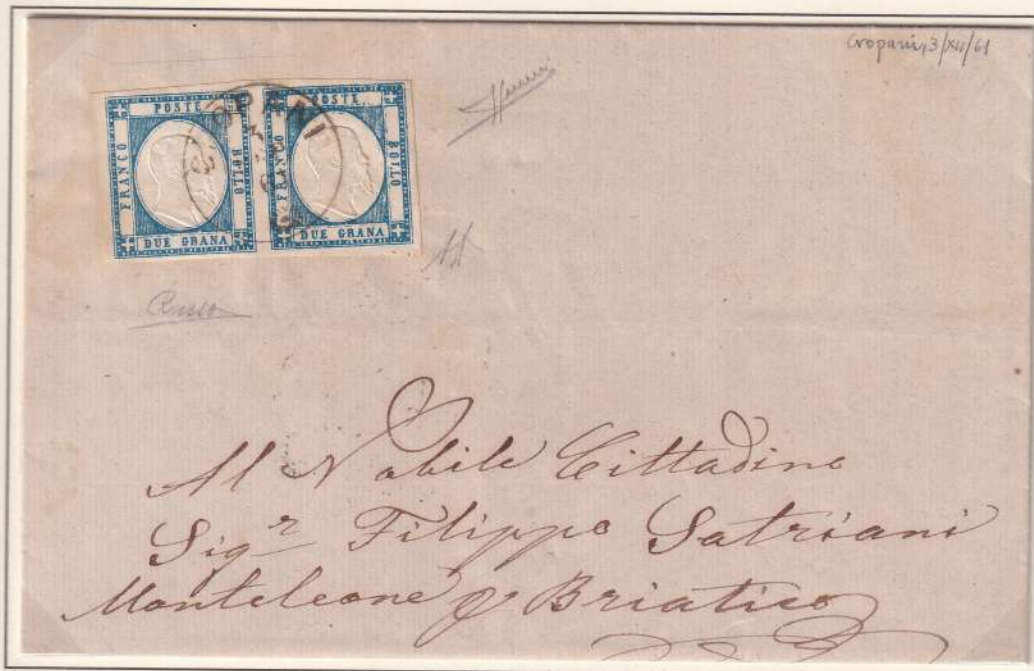 Cropani, 3/XII/61
POSTE
FRANCO
BOLLO
DUE GRANA
POSTE
FRANCO
BOLLO
DUE GRANA
CROPANI
Russo
Al Nobile Cittadino
Sigr Filippo Satriani
Monteleone per Briatico